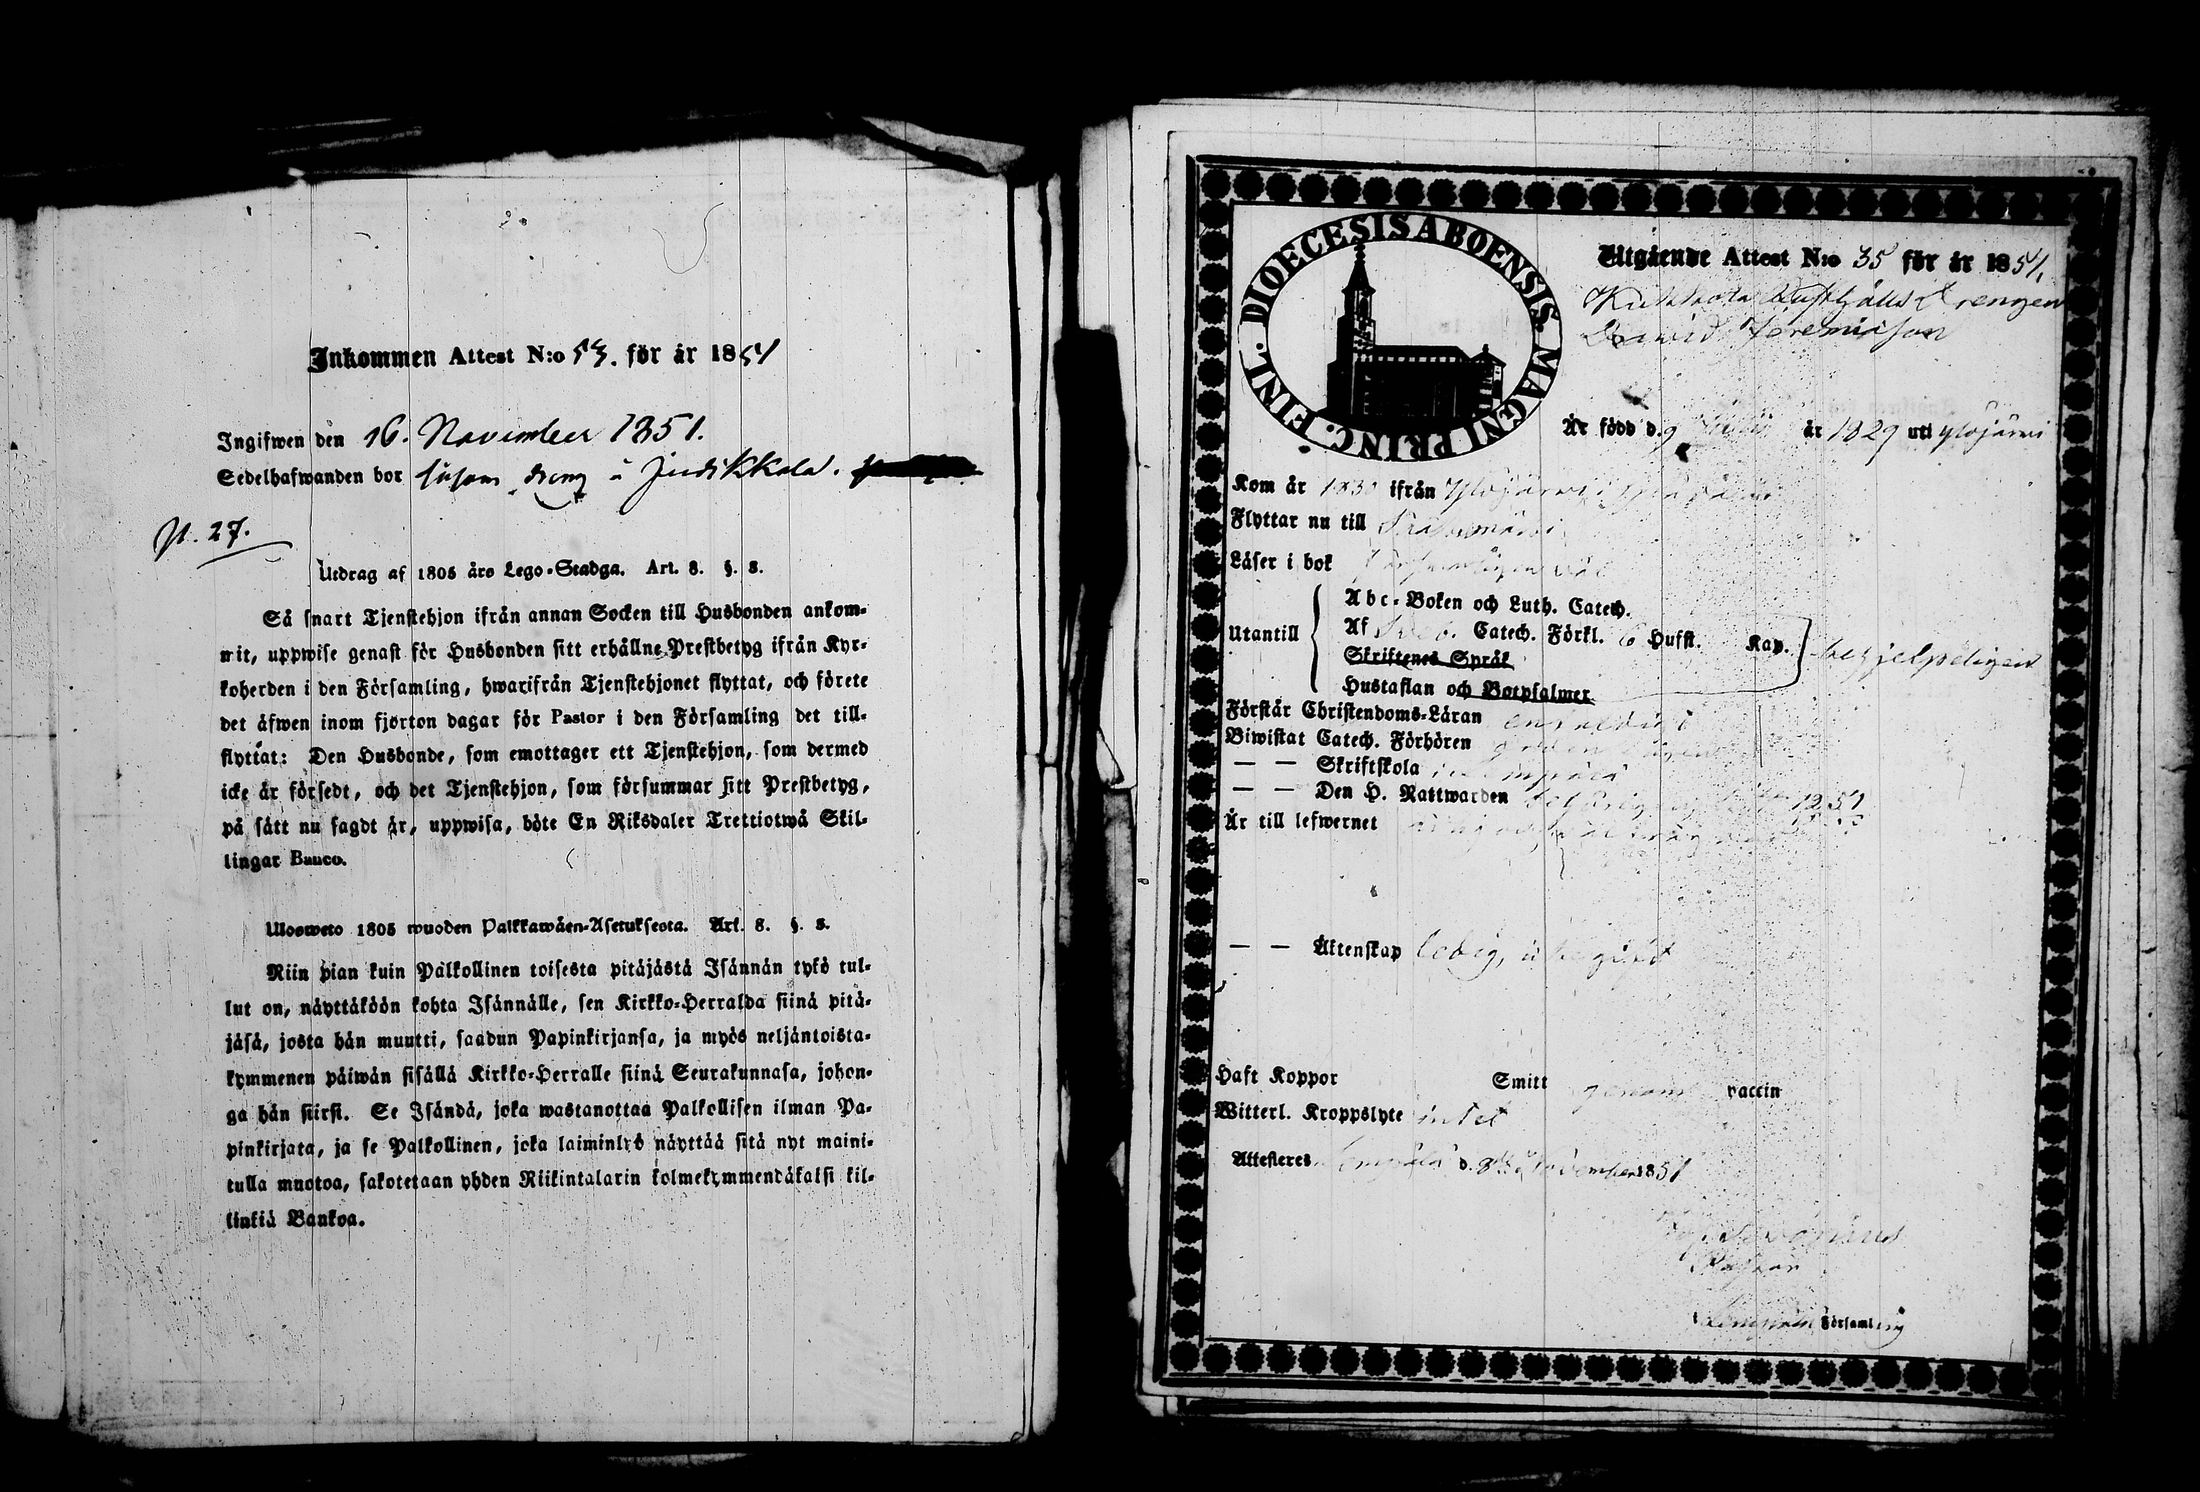 Inkommen Attest N:o 53. för år 1851
Ingifwen den 16. November 1851.
Sedelhafwanden bor såsom dreng å Judikkala.
p. 27.
Utdrag af 1805 års Lego-Stadga. Art. 8. §. 8.
Så snart Tjenstehjon ifrån annan Socken till Husbonden ankom-
mit, uppwise genast för Husbonden sitt erhållne Prestbetyg ifrån Kyr-
koherden i den Församling, hwarifrån Tjenstehjonet flyttat, och förete
det äfwen inom fjorton dagar för Pastor i den Församling det till-
flyttat: Den Husbonde, som emottager ett Tjenstehjon, som dermed
icke är försedt, och det Tjenstehjon, som försummar sitt Prestbetyg,
på sätt nu sagdt är, uppwisa, böte En Riksdaler Trettiotwå Skil-
lingar Banco.
Uloswето 1805 wuoden Palkkawäen-Asetuksesta. Art. 8. §. 8.
Niin pian kuin Palkollinen toisesta pitäjästä Isännän tykö tul-
lut on, näyttäköön kohta Isännälle, sen Kirkko-Herralda siinä pitä-
jäsä, josta hän muutti, saadun Papinkirjansa, ja myös neljäntoista-
kymmenen päiwän sisällä Kirkko-Herralle siinä Seurakunnasa, johon-
ga hän siirsi. Se Isändä, joka wastanottaa Palkollisen ilman Pa-
pinkirjata, ja se Palkollinen, joka laiminlyö näyttää sitä nyt maini-
tulla muotoa, sakotetaan yhden Riikintalarin kolmekymmendäkaksi kil-
linkiä Bankoa.
DIOECESIS ABOENSIS. MAGNI PRINC. FINL.
Utgående Attest N:o 35 för år 1851.
Drengen
David Jeremiasson
Är född d. 9 år 1829 uti Ylöjärvi
Kom år 183 ifrån Ylöjärvi
Flyttar nu till
Läser i bok
Utantill
Abc-Boken och Luth. Catech.
Af Catech. Förkl. 6 Hufst. Kap.
Skriftenes Språk
Hustaflan och Botpsalmer
behjelpeligen
Förstår Christendoms-Läran
Biwistat Catech. Förhören
— — Skriftskola
— — Den H. Nattwarden 1851
Är till lefwernet
— — Äktenskap ledig, icke gift
Haft Koppor Smitt genom vaccin
Witterl. Kroppslyte intet
Attesteres Lempälä d. 8 November 1851
Lempälä Församling